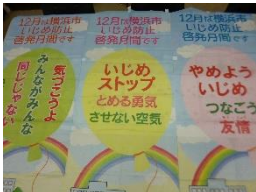 12月は横浜市
いじめ防止
啓発月間です
気づこうよ
みんながみんな
同じじゃない
12月は横浜市
いじめ防止
啓発月間です
いじめ
ストップ
とめる勇気
させない空気
12月は横浜市
いじめ防止
啓発月間です
やめよう
いじめ
つなごう
友情